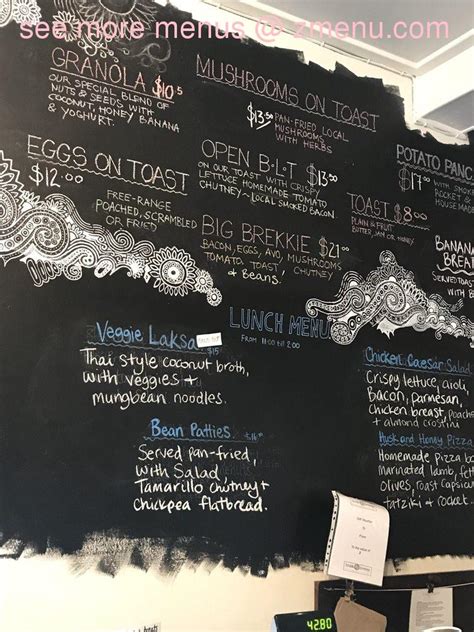 see more menus @ zmenu.com
GRANOLA $10.5
OUR SPECIAL BLEND OF
NUTS & SEEDS WITH
COCONUT, HONEY BANANA
& YOGHURT.
MUSHROOMS ON TOAST
$13.50 PAN-FRIED LOCAL
MUSHROOMS
WITH HERBS
EGGS ON TOAST
$12.00
FREE-RANGE
POACHED, SCRAMBLED
OR FRIED
OPEN B·L·T $13.00
ON OUR TOAST WITH CRISPY
LETTUCE HOMEMADE TOMATO
CHUTNEY ~ LOCAL SMOKED BACON.
BIG BREKKIE $21.00
BACON, EGGS, AVO, MUSHROOMS
TOMATO TOAST CHUTNEY
& Beans!
POTATO PANC
$17.00
ROCKET &
HOUSEMADE
TOAST $8.00
PLAIN & FRUIT
BUTTER, JAM OR HONEY
BANANA
BREA
SERVED TOAS
WITH B
LUNCH MENU
FROM 11:00 til 2:00
Veggie Laksa
$15
Thai Style coconut broth,
with veggies &
mungbean noodles.
Bean Patties
Served pan-fried,
with Salad
Tamarillo chutney &
Chickpea flatbread.
Chicken Caesar Salad
Crispy lettuce, aioli,
Bacon, parmesan,
chicken breast, poache
+ almond crostini
Husk and Honey Pizza
Homemade Pizza ba
marinated lamb, fet
olives, roast capsicu
tatziki & rocket.
42.80